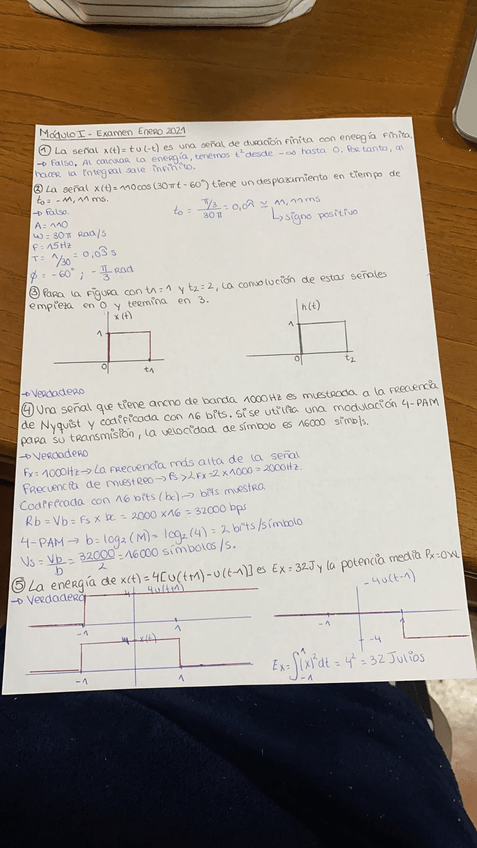 Módulo I - Examen Enero 2021
① La señal x(t)=tu(-t) es una señal de duración finita con energía finita.
→ Falso. Al calcular la energía, tenemos t² desde -∞ hasta 0. Por tanto, al
hacer la integral sale infinito.
② La señal x(t)=110cos(30πt-60°) tiene un desplazamiento en tiempo de
t₀ = -11,11 ms.
→ Falso.
A=110
ω=30π rad/s
F=15Hz
T=1/30=0,03s
ϕ=-60°; -π/3 rad
t₀ = (π/3)/(30π) = 0,01 ≃ 11,11 ms
↳ signo positivo
③ Para la figura con t₁=1 y t₂=2, la convolución de estas señales
empieza en 0 y termina en 3.
x(t)
1
0 t₁
h(t)
1
0 t₂
→ Verdadero
④ Una señal que tiene ancho de banda 1000Hz es muestrada a la frecuencia
de Nyquist y codificada con 16 bits. Si se utiliza una modulación 4-PAM
para su transmisión, la velocidad de símbolo es 16000 simb/s.
→ Verdadero
Fx=1000Hz → La frecuencia más alta de la señal
Frecuencia de muestreo → fs>2Fx=2x1000=2000Hz.
Codificada con 16 bits (bc) → bits muestra
Rb = Vb = Fs x bc = 2000 x 16 = 32000 bps
4-PAM → b=log₂(M)=log₂(4)=2 bits/símbolo
Vs = Vb/b = 32000/2 = 16000 símbolos/s.
⑤ La energía de x(t)=4[u(t+1)-u(t-1)] es Ex=32J y la potencia media Px=0W.
→ Verdadero
4 4u(t+1)
-1 1
-4u(t-1)
-1 1
-4
4 x(t)
-1 1
Ex=∫₋₁¹(x)²dt = 4² = 32 Julios